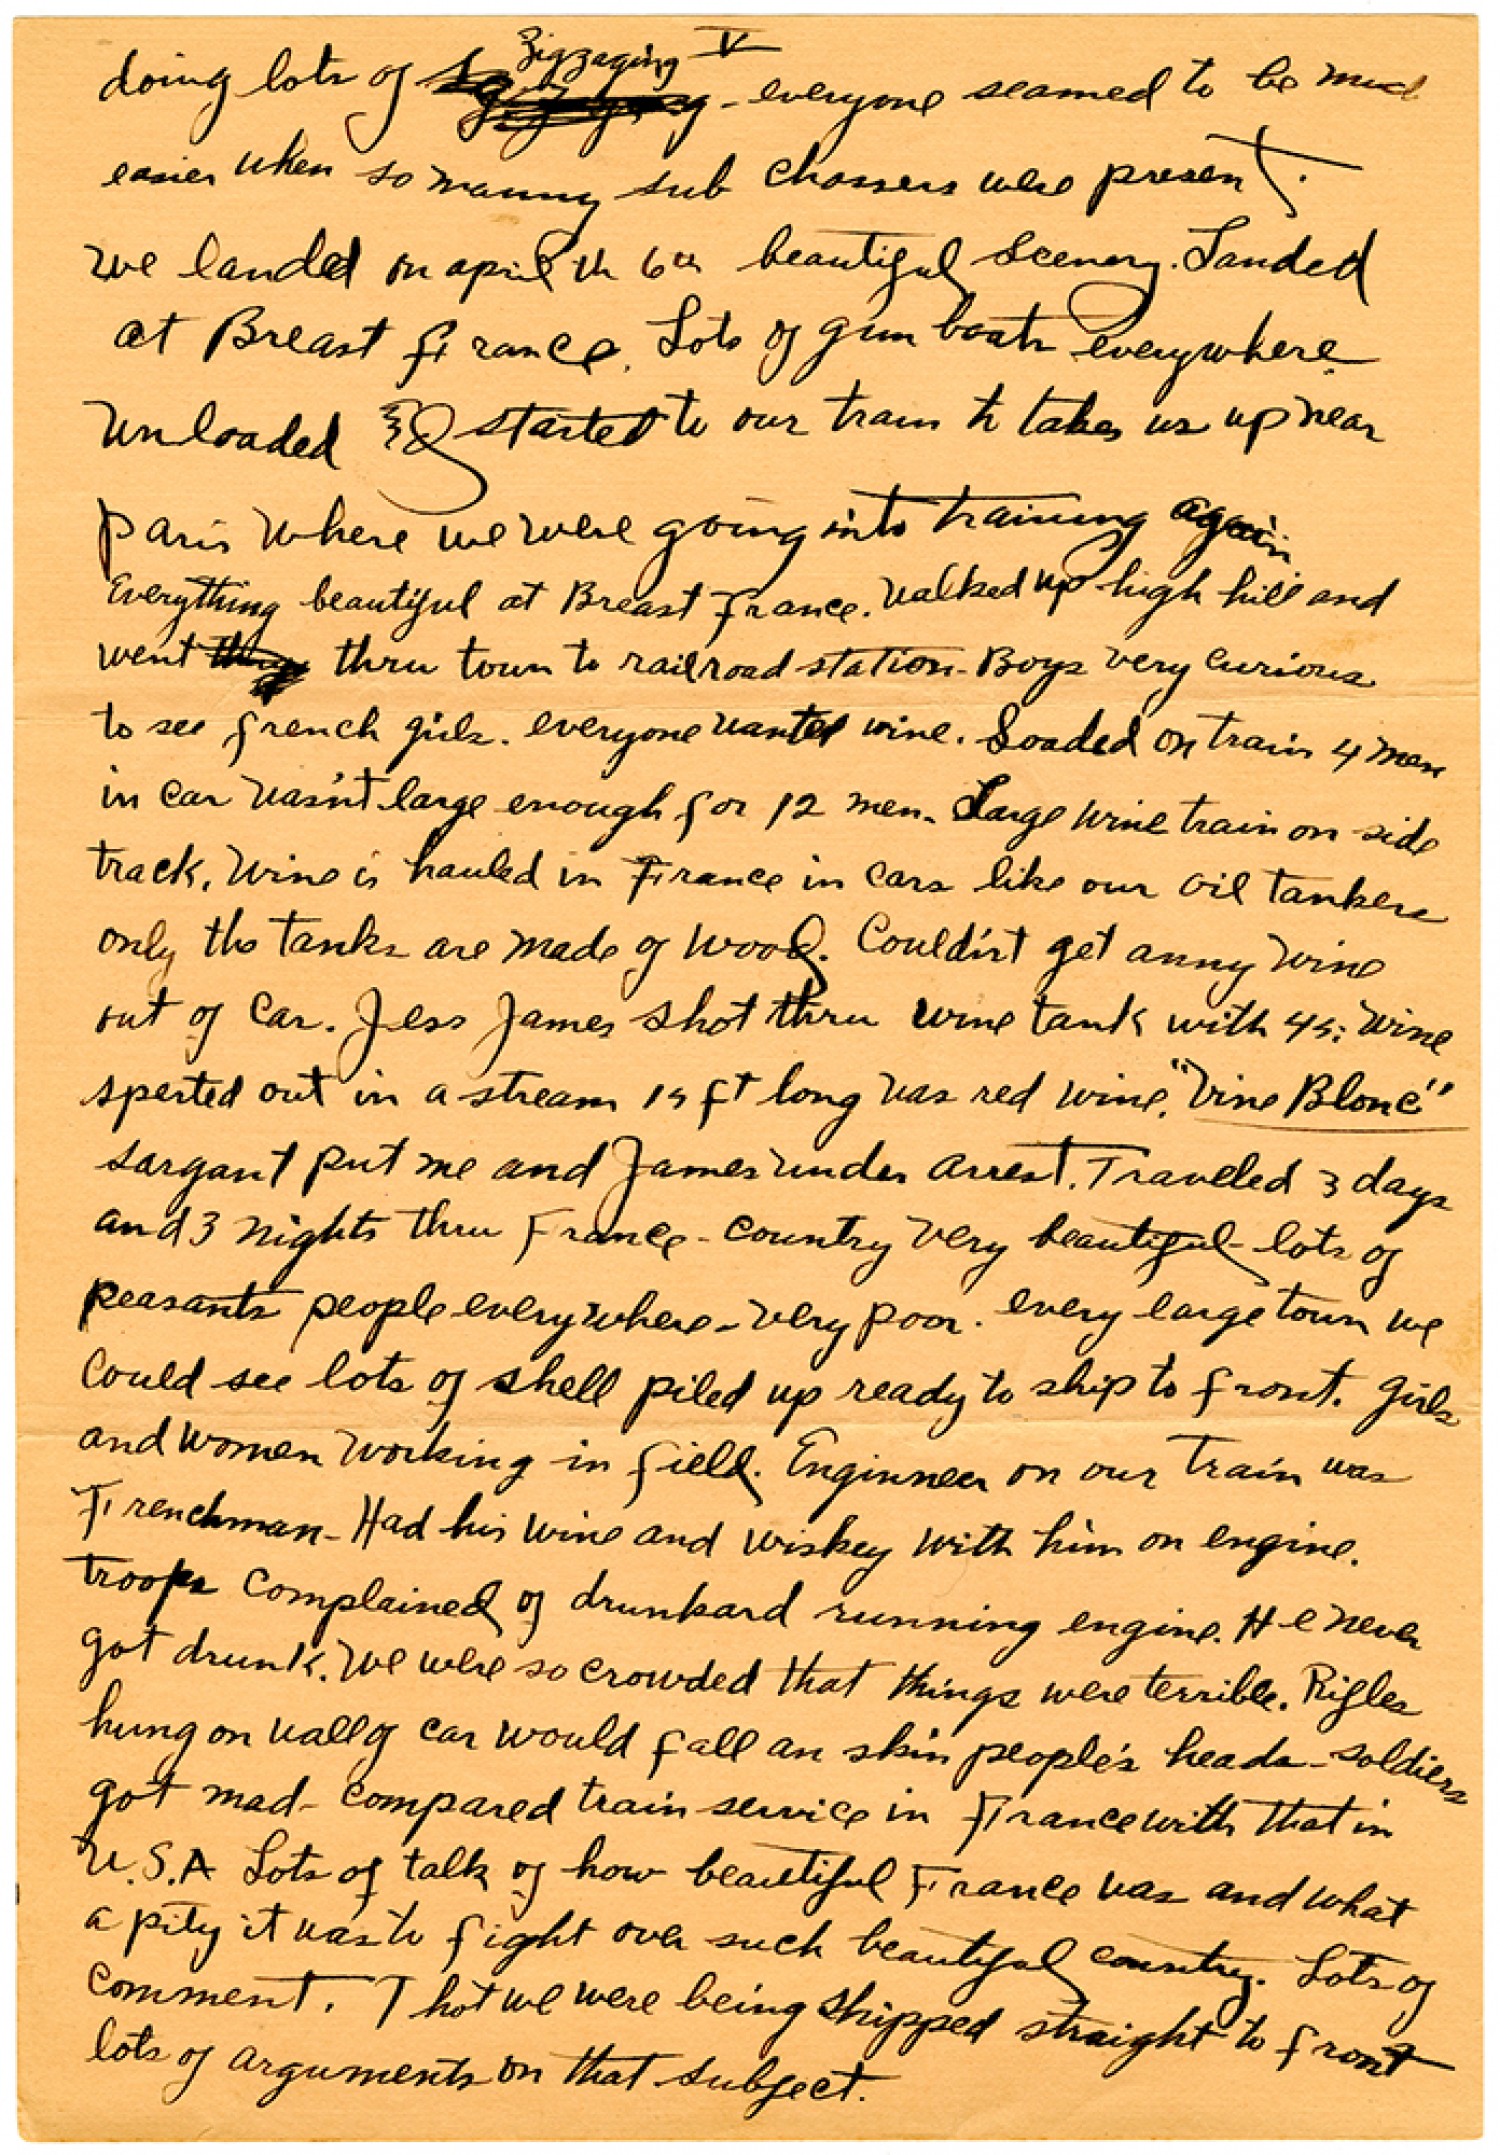 doing lots of zigzaging - everyone seamed to be much
easier when so manny sub chassers were present.
We landed on april th 6th beautiful scenery. Landed
at Breast France. Lots of gun boats everywhere.
Unloaded & started to our train to takes us up near
paris where we were going into training again
Everything beautiful at Breast France. Walked up high hill and
went thru town to railroad station - Boys very curious
to see french girls. everyone wanted wine. Loaded on train 4 men
in car wasn't large enough for 12 men. Large wine train on side
track. Wine is hauled in France in cars like our oil tankers
only the tanks are made of wood. Could'nt get anny wine
out of car. Jess James shot thru wine tank with 45: Wine
sperted out in a stream 15 ft long was red wine. "Vine Blonc"
sargant put me and James under arrest. Travelled 3 days
and 3 nights thru France - country very beautiful - lots of
peasants people everywhere - very poor. every large town we
could see lots of shell piled up ready to ship to front. Girls
and women working in field. Enginneer on our train was
Frenchman - Had his wine and wiskey with him on engine.
troops complained of drunkard running engine. He never
got drunk. We were so crowded that things were terrible. Rifles
hung on wall of car would fall an skin people's heads - soldiers
got mad - compared train service in France with that in
U.S.A Lots of talk of how beautiful France was and what
a pity it was to fight over such beautiful country. Lots of
comment. Thot we were being shipped straight to front
lots of arguments on that subject.